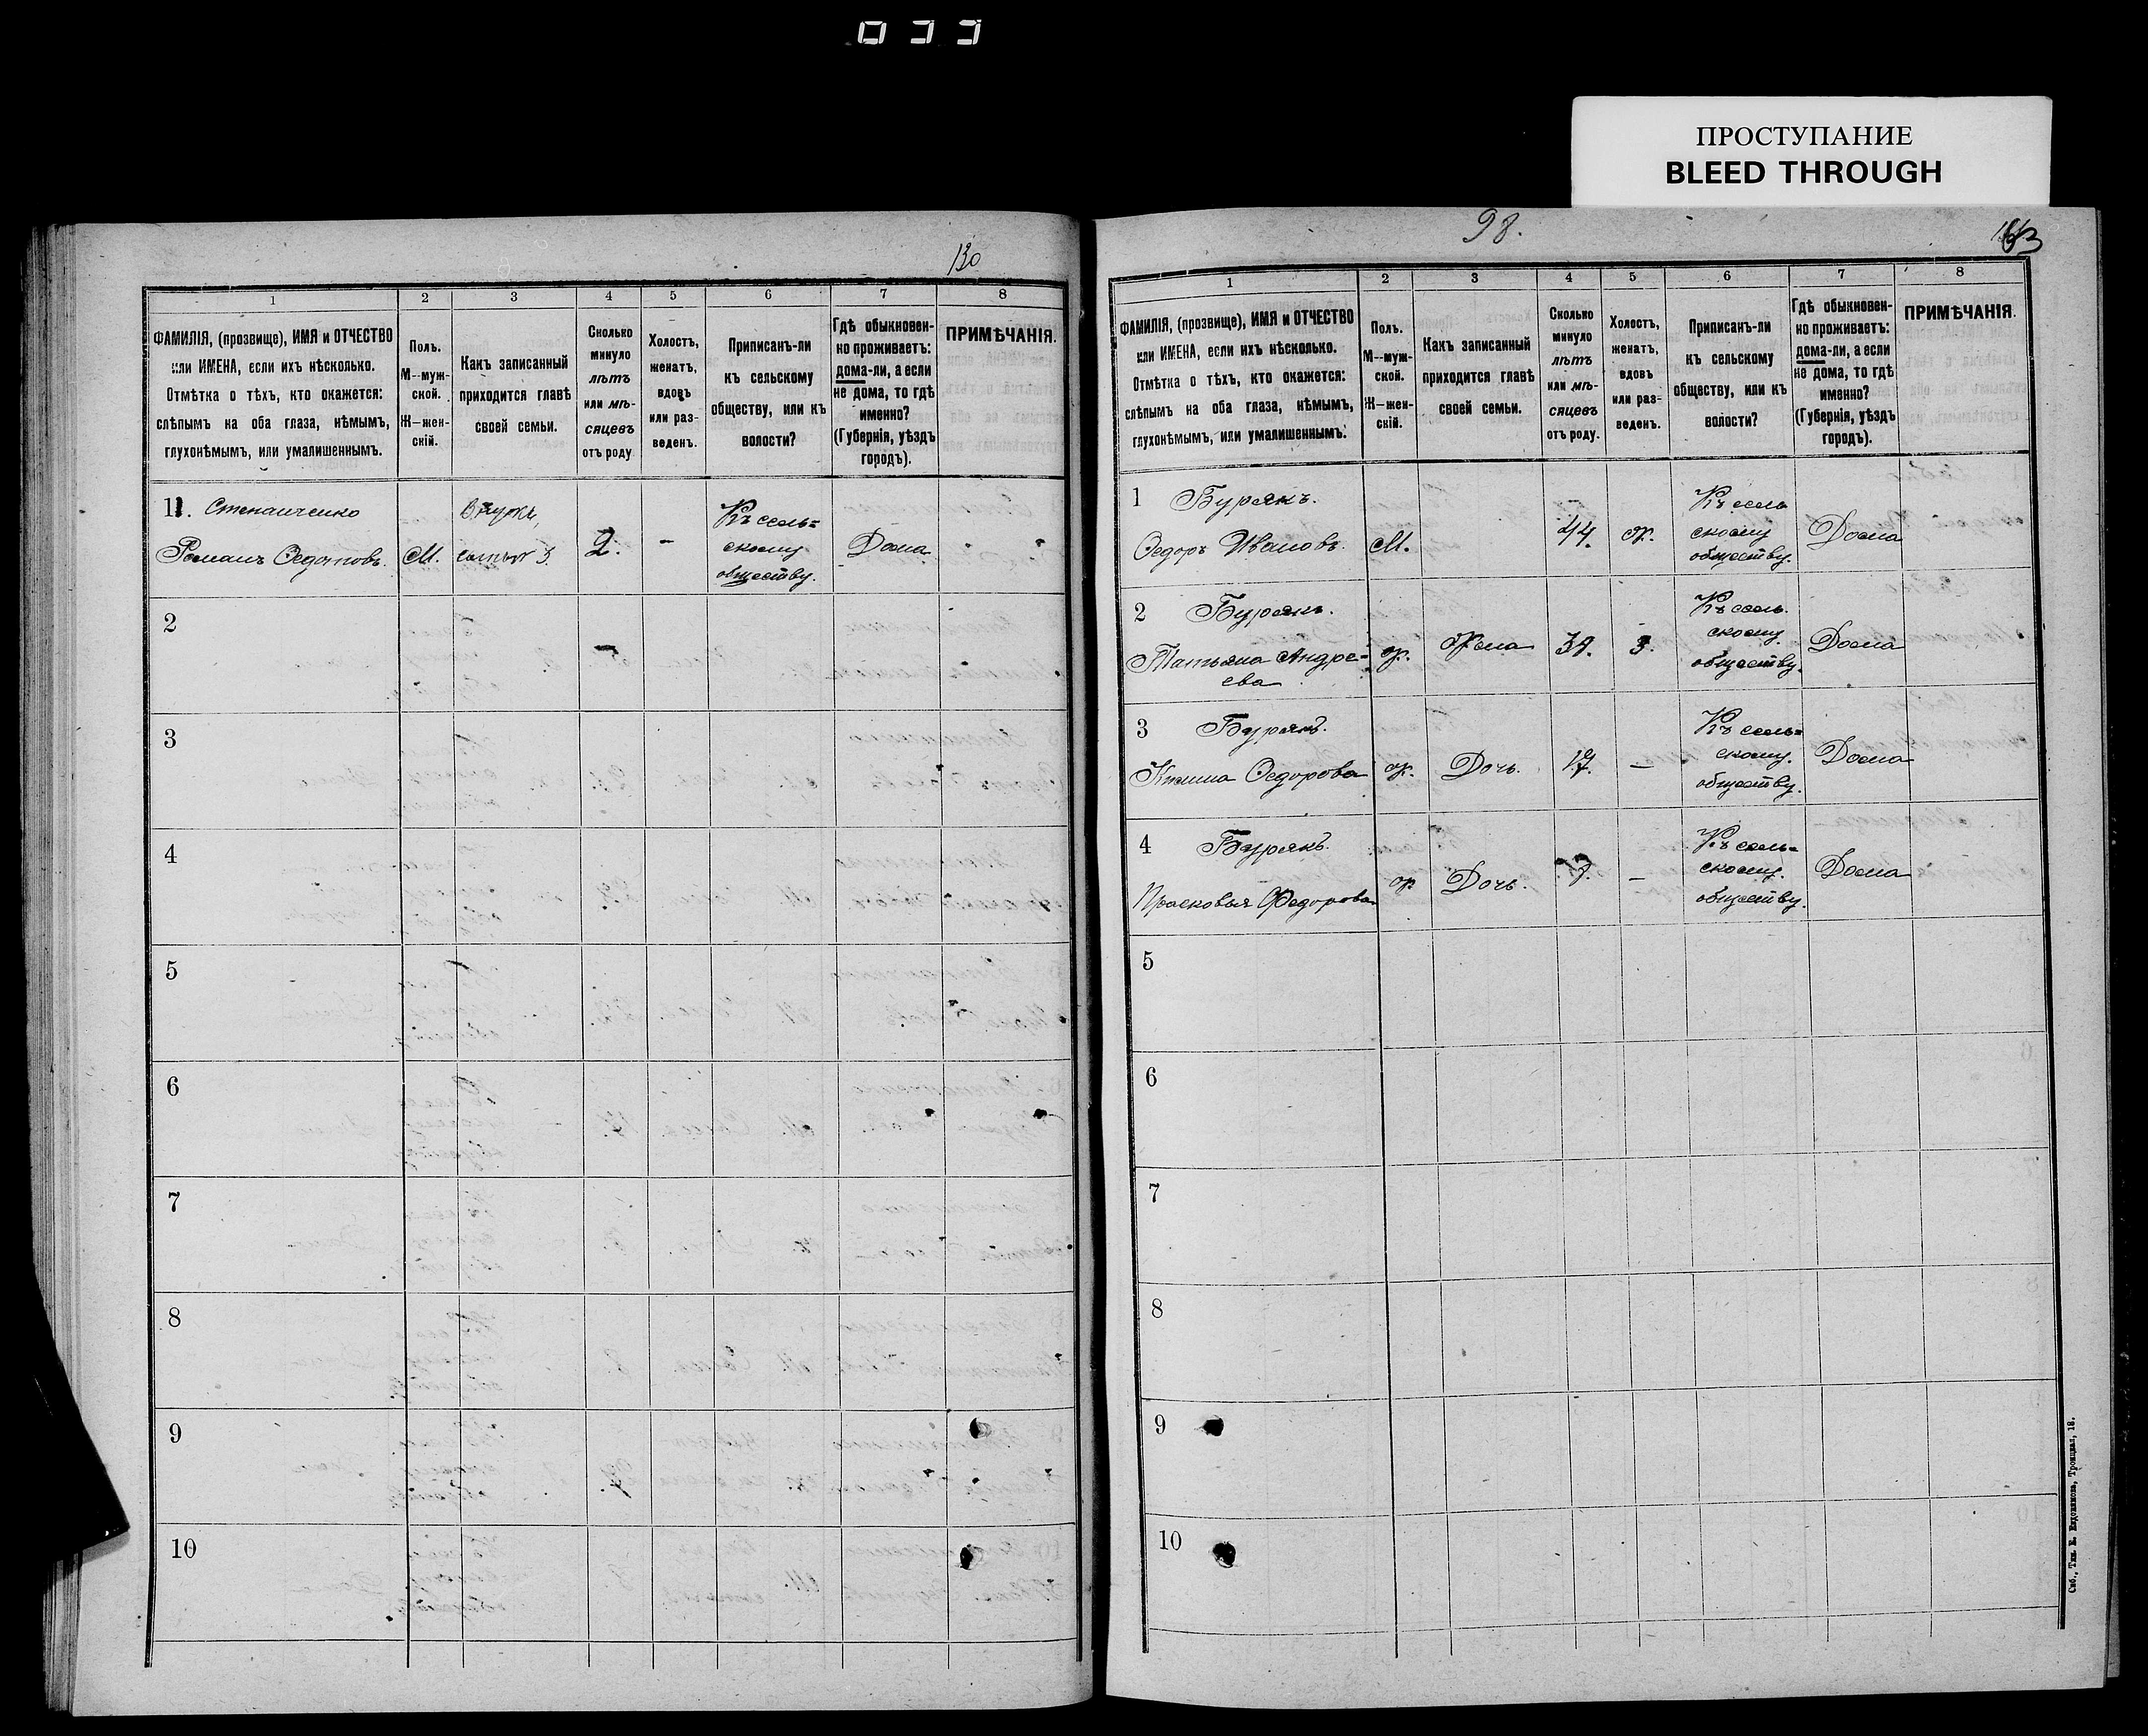 033
ПРОСТУПАНИЕ
BLEED THROUGH
130
1 2 3 4 5 6 7 8
ФАМИЛІЯ, (прозвище), ИМЯ и ОТЧЕСТВО
или ИМЕНА, если ихъ нѣсколько.
Отмѣтка о тѣхъ, кто окажется:
слѣпымъ на оба глаза, нѣмымъ,
глухонѣмымъ, или умалишеннымъ.
Полъ.
М--муж-
ской.
Ж—жен-
скій.
Какъ записанный
приходится главѣ
своей семьи.
Сколько
минуло
лѣтъ
или мѣ-
сяцевъ
отъ роду
Холостъ,
женатъ,
вдовъ
или раз-
веденъ.
Приписанъ-ли
къ сельскому
обществу, или къ
волости?
Гдѣ обыкновен-
но проживаетъ:
дома-ли, а если
не дома, то гдѣ
именно?
(Губернія, уѣздъ
городъ).
ПРИМѢЧАНІЯ.
11. Степанченко
Романъ Федотовъ.
М.
Внукъ,
2.
-
Къ сель=
скому
обществу.
Дома
2
3
4
5
6
7
8
9
10
98.
1 2 3 4 5 6 7 8
ФАМИЛІЯ, (прозвище), ИМЯ и ОТЧЕСТВО
или ИМЕНА, если ихъ нѣсколько.
Отмѣтка о тѣхъ, кто окажется:
слѣпымъ на оба глаза, нѣмымъ,
глухонѣмымъ, или умалишеннымъ.
Полъ.
М--муж-
ской.
Ж—жен-
скій.
Какъ записанный
приходится главѣ
своей семьи.
Сколько
минуло
лѣтъ
или мѣ-
сяцевъ
отъ роду.
Холостъ,
женатъ,
вдовъ
или раз-
веденъ.
Приписанъ-ли
къ сельскому
обществу, или къ
волости?
Гдѣ обыкновен-
но проживаетъ:
дома-ли, а если
не дома, то гдѣ
именно?
(Губернія, уѣздъ
городъ).
ПРИМѢЧАНІЯ.
1 Бурякъ.
Федоръ Ивановъ.
М.
44.
ж.
Къ сель
скому
обществу.
Дома
2 Бурякъ.
Татьяна Андре=
ева
ж.
Жена
3.
Къ сель.
скому
обществу.
Дома
3 Бурякъ.
Федорова
ж.
Дочь.
17.
—
Къ сель=
скому.
обществу.
Дома
4 Бурякъ.
Прасковья Федорова
ж
Дочь.
—
Къ сель=
скому.
обществу.
Дома
5
6
7
8
9
10
Спб., Тип. Е. Евдокимова, Троицкая, 18.